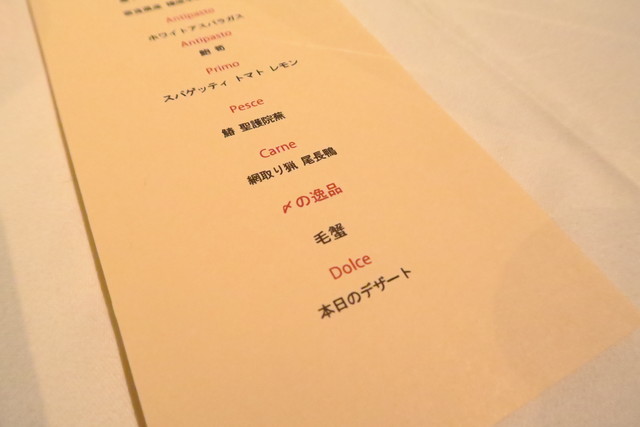 Antipasto
ホワイトアスパラガス
Antipasto
鮑 筍
Primo
スパゲッティ トマト レモン
Pesce
鰆 聖護院蕪
Carne
網取り猟 尾長鴨
〆の逸品
毛蟹
Dolce
本日のデザート